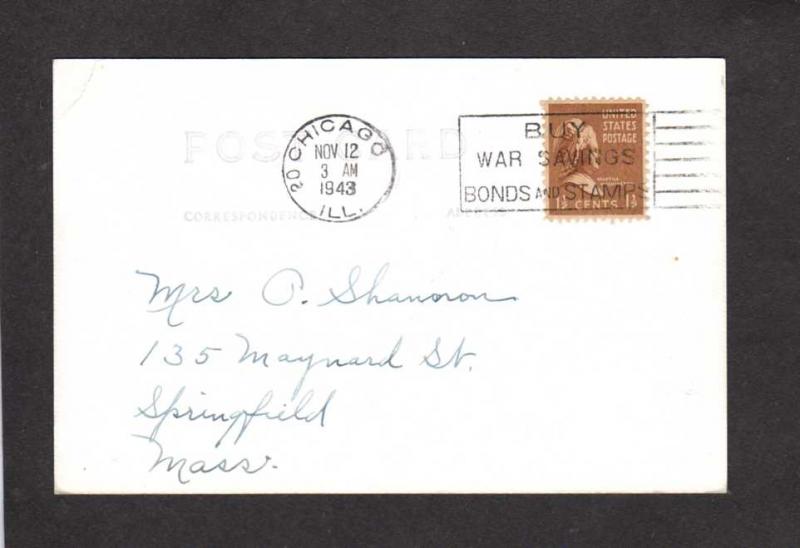 POST CARD
CORRESPONDENCE ADDRESS
CHICAGO 20
NOV 12
3 AM
1943
ILL.
BUY
WAR SAVINGS
BONDS AND STAMPS
UNITED
STATES
POSTAGE
1½ CENTS 1½
Mrs P. Shanoron
135 Maynard St.
Springfield
Mass.